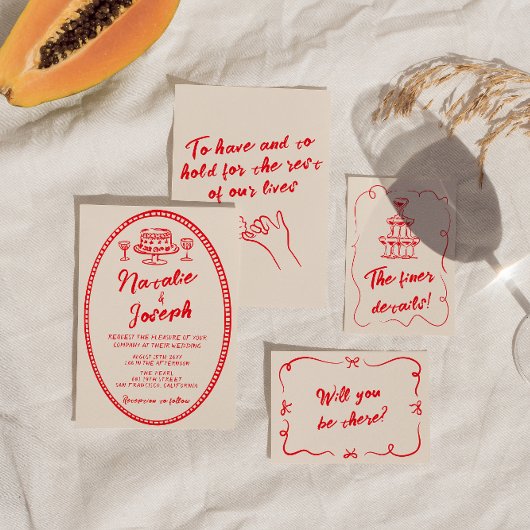 To have and to
hold for the rest
of our lives
Natalie
&
Joseph
REQUEST THE PLEASURE OF YOUR
COMPANY AT THEIR WEDDING
AUGUST 15TH 20XX
1:00 IN THE AFTERNOON
THE PEARL
601 19TH STREET
SAN FRANCISCO, CALIFORNIA
Reception to follow
The finer
details!
Will you
be there?